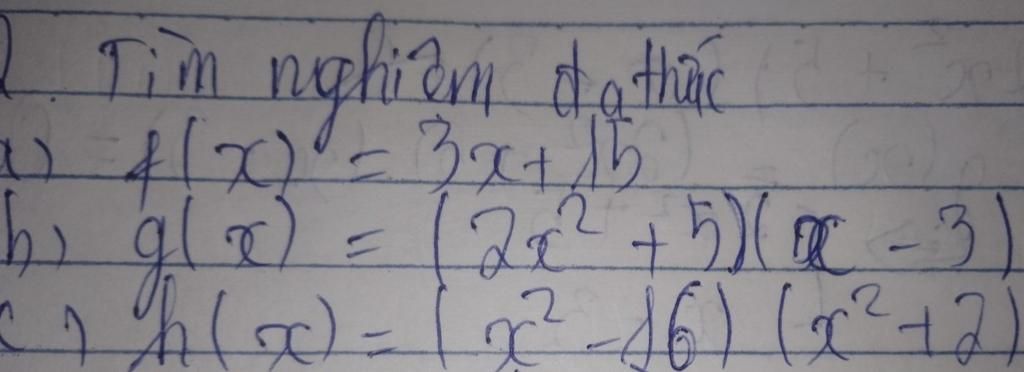 2. Tìm nghiệm đa thức
a) f(x) = 3x + 15
b) g(x) = (2x² + 5)(x - 3)
c) h(x) = (x² - 16) (x² + 2)